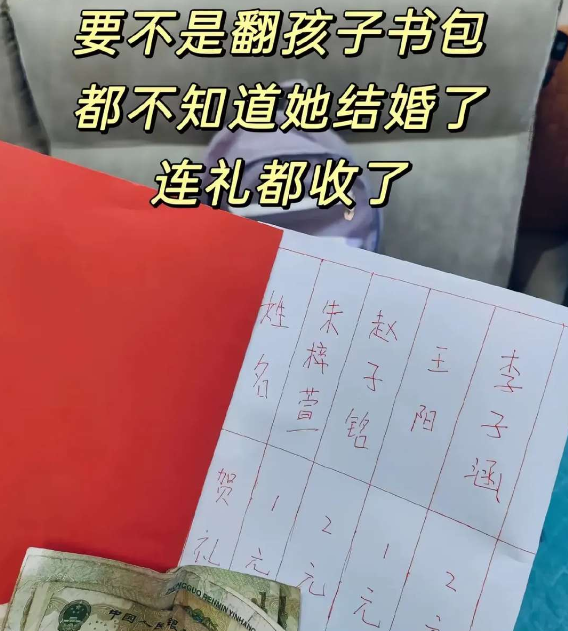 要不是翻孩子书包
都不知道她结婚了
连礼都收了
姓名 朱梓萱 赵子铭 王阳 李子涵
贺礼 1元 2元 1元 2元
ZHONGGUO RENMIN YINHANG
中国人民银